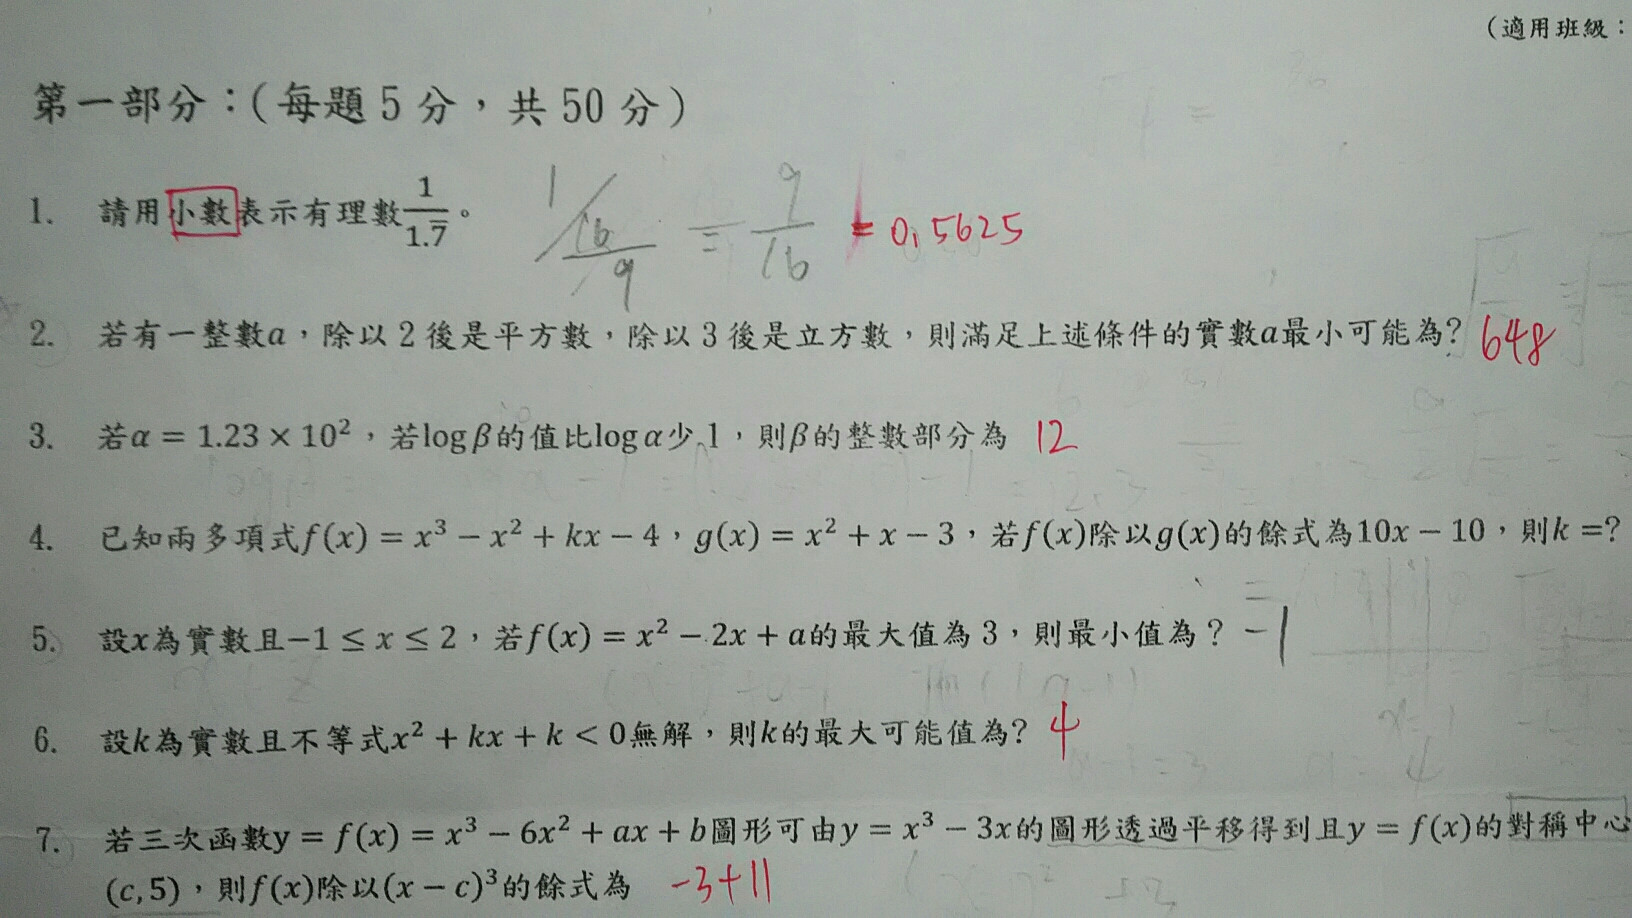 (適用班級：
第一部分：(每題 5 分，共 50 分)
1. 請用小數表示有理數 1/1.7̅。 1/(16/9) = 9/16 = 0.5625
2. 若有一整數a，除以 2 後是平方數，除以 3 後是立方數，則滿足上述條件的實數a最小可能為? 648
3. 若α = 1.23 × 10²，若log β的值比log α少 1，則β的整數部分為 12
4. 已知兩多項式f(x) = x³ − x² + kx − 4，g(x) = x² + x − 3，若f(x)除以g(x)的餘式為10x − 10，則k =?
5. 設x為實數且−1 ≤ x ≤ 2，若f(x) = x² − 2x + a的最大值為 3，則最小值為？ −1
6. 設k為實數且不等式x² + kx + k < 0無解，則k的最大可能值為? 4
7. 若三次函數y = f(x) = x³ − 6x² + ax + b圖形可由y = x³ − 3x的圖形透過平移得到且y = f(x)的對稱中心
(c, 5)，則f(x)除以(x − c)³的餘式為 -3+11